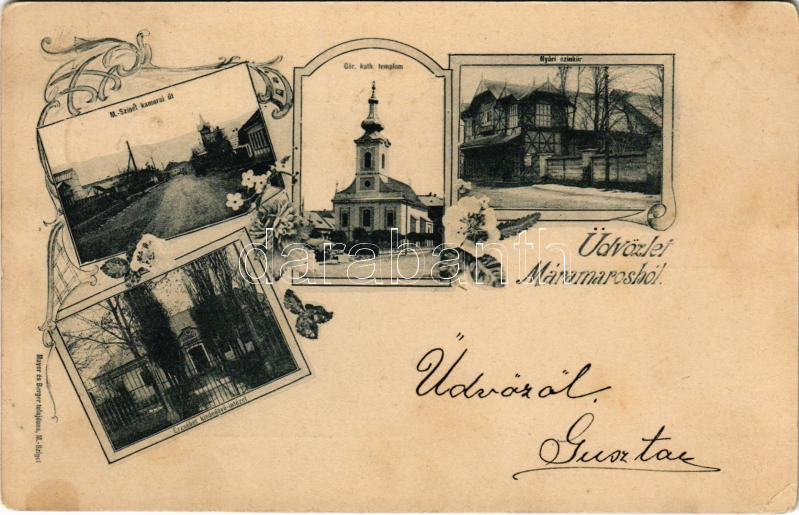 M.-Sziget kamarai út
Gör. kath. templom
Nyári szinkör
Üdvözlet
Máramarosból.
Erzsébet kisdedóvó-intézet
Mayer és Berger tulajdona, M.-Sziget
Üdvözöl.
Gusztav
darabanth